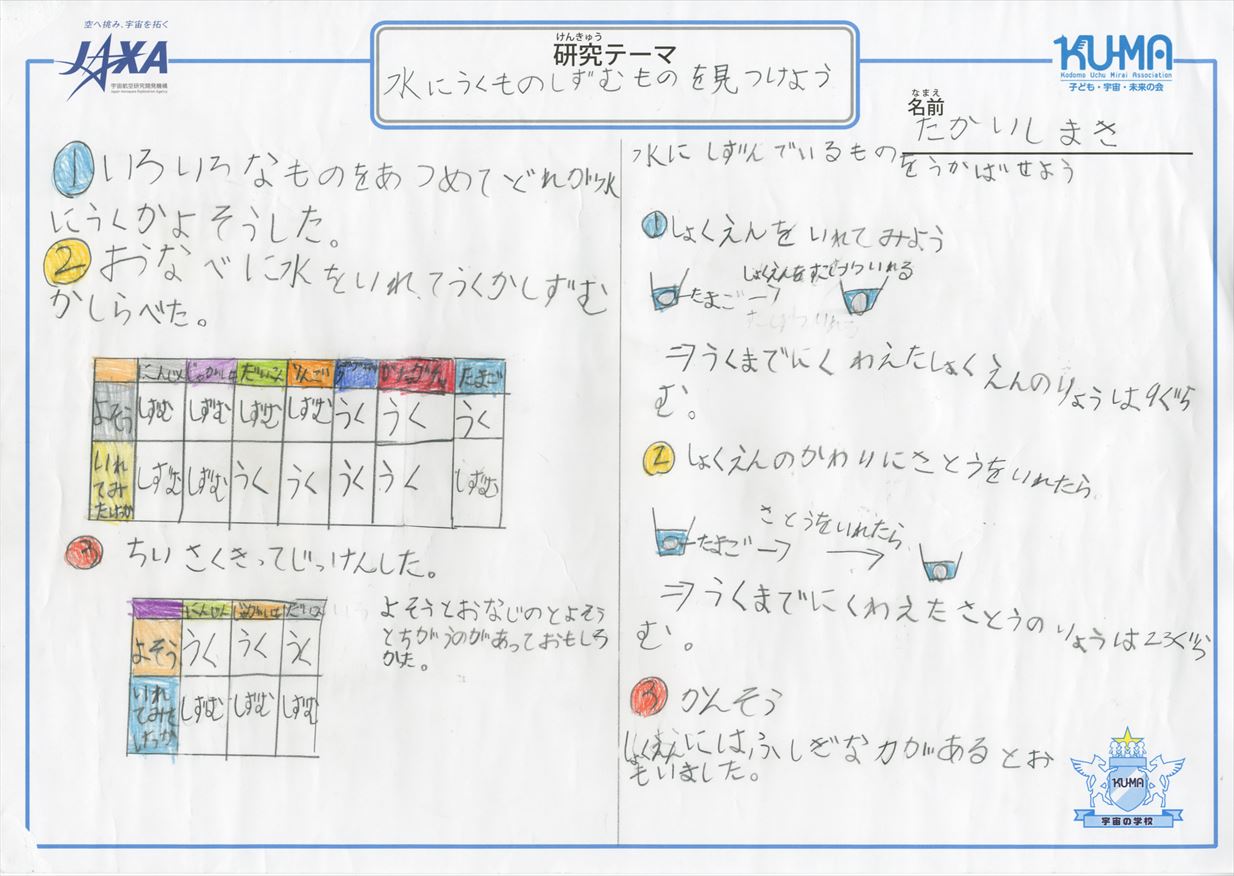 空へ挑み、宇宙を拓く
JAXA
宇宙航空研究開発機構
Japan Aerospace Exploration Agency
けんきゅう
研究テーマ
水にうくものしずむものを見つけよう
KU-MA
Kodomo Uchu Mirai Association
子ども・宇宙・未来の会
なまえ
名前
たかいしまさき
①いろいろなものをあつめてどれが水
にうくかよそうした。
②おうなべに水をいれてうくかしずむ
かしらべた。
にんじん じゃがいも だいこん りんご かなダライ たまご
よそう しずむ しずむ しずむ しずむ うく うく うく
いれ
てみ
たけっか
しずむ しずむ うく うく うく うく しずむ
③ ちいさくきってじっけんした。
にんじん じゃがいも だいこん
よそう うく うく うく
いれ
てみた
けっか
しずむ しずむ しずむ
よそうとおなじのとよそう
とちがうのがあっておもしろ
かた。
水にしずんでいるものをうかばせよう
①しょくえんをいれてみよう
たまご→
しょくえんをすこしずついれる
⇒うくまでにくわえたしょくえんのりょうは9ぐら
む。
②しょくえんのかわりにさとうをいれたら
たまご→
さとうをいれたら
→
⇒うくまでにくわえたさとうのりょうは23ぐら
む。
③ かんそう
しょくえんにはふしぎな力があるとお
もいました。
KU-MA
宇宙の学校